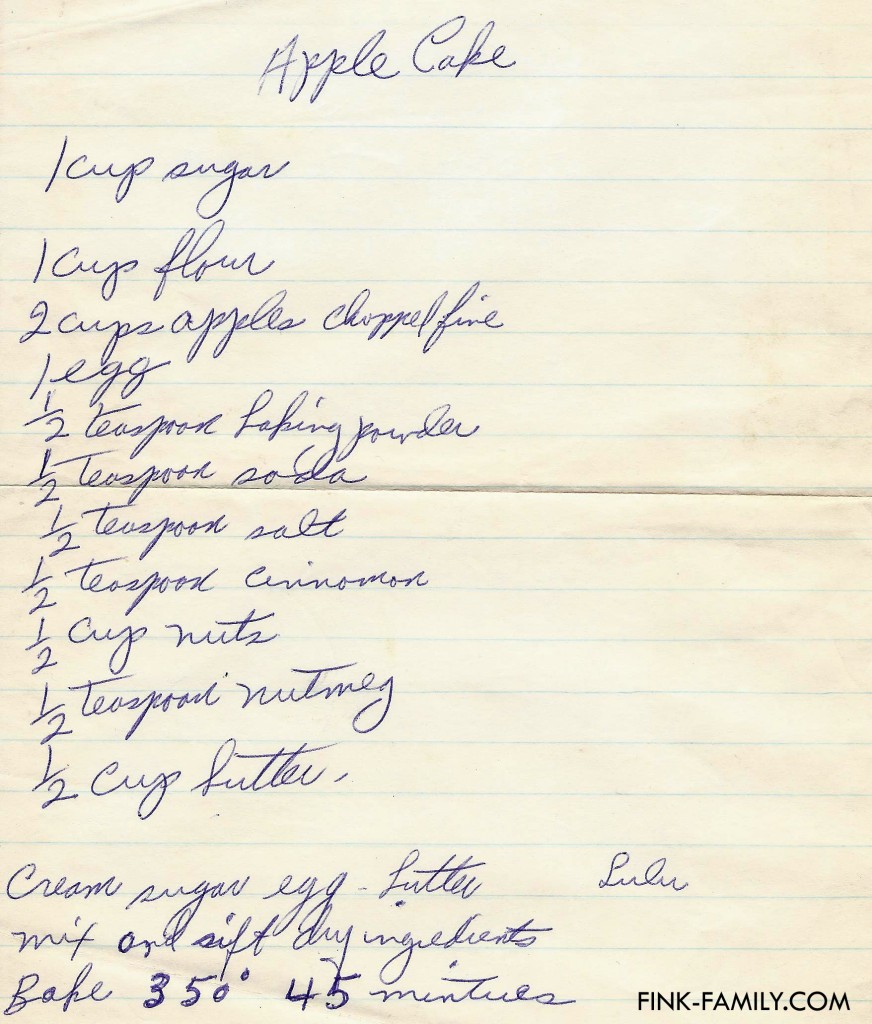 Apple Cake
1 cup sugar
1 cup flour
2 cups apples chopped fine
1 egg
1/2 teaspoon baking powder
1/2 teaspoon soda
1/2 teaspoon salt
1/2 teaspoon cinnamon
1/2 cup nuts
1/2 teaspoon nutmeg
1/2 cup butter.
Cream sugar egg - butter Lulu
mix and sift dry ingredients
Bake 350° 45 mintues
FINK-FAMILY.COM